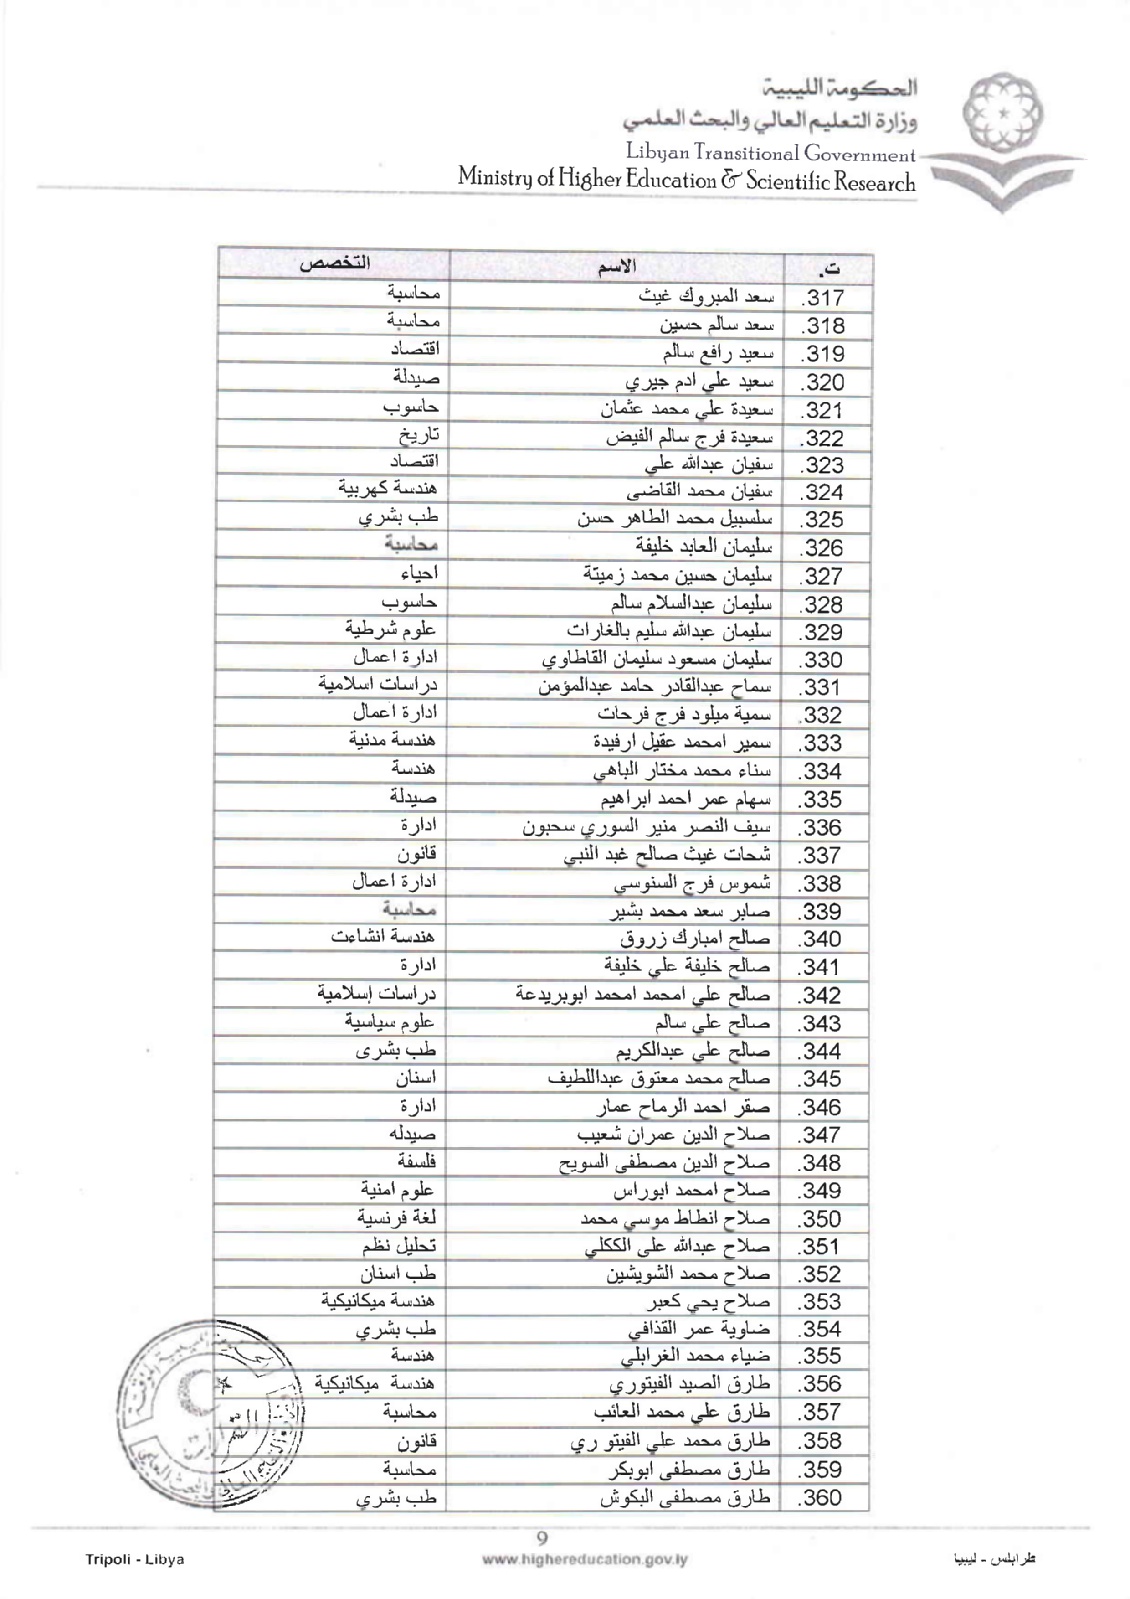 الحكومة الليبية
وزارة التعليم العالي والبحث العلمي
Libyan Transitional Government
Ministry of Higher Education & Scientific Research
ت. الاسم التخصص
317. سعد المبروك غيث محاسبة
318. سعد سالم حسين محاسبة
319. سعيد رافع سالم اقتصاد
320. سعيد علي ادم جيري صيدلة
321. سعيدة علي محمد عثمان حاسوب
322. سعيدة فرج سالم الفيض تاريخ
323. سفيان عبدالله علي اقتصاد
324. سفيان محمد القاضى هندسة كهربية
325. سلسبيل محمد الطاهر حسن طب بشري
326. سليمان العابد خليفة محاسبة
327. سليمان حسين محمد زميتة احياء
328. سليمان عبدالسلام سالم حاسوب
329. سليمان عبدالله سليم بالغارات علوم شرطية
330. سليمان مسعود سليمان القاطاوي ادارة اعمال
331. سماح عبدالقادر حامد عبدالمؤمن دراسات اسلامية
332. سمية ميلود فرج فرحات ادارة اعمال
333. سمير امحمد عقيل ارفيدة هندسة مدنية
334. سناء محمد مختار الباهي هندسة
335. سهام عمر احمد ابراهيم صيدلة
336. سيف النصر منير السوري سحبون ادارة
337. شحات غيث صالح عبد النبي قانون
338. شموس فرج السنوسي ادارة اعمال
339. صابر سعد محمد بشير محاسبة
340. صالح امبارك زروق هندسة انشاءت
341. صالح خليفة علي خليفة ادارة
342. صالح علي امحمد امحمد ابوبريدعة دراسات إسلامية
343. صالح علي سالم علوم سياسية
344. صالح علي عبدالكريم طب بشرى
345. صالح محمد معتوق عبداللطيف اسنان
346. صقر احمد الرماح عمار ادارة
347. صلاح الدين عمران شعيب صيدله
348. صلاح الدين مصطفى السويح فلسفة
349. صلاح امحمد ابوراس علوم امنية
350. صلاح انطاط موسي محمد لغة فرنسية
351. صلاح عبدالله على الككلي تحليل نظم
352. صلاح محمد الشويشين طب اسنان
353. صلاح يحي كعبر هندسة ميكانيكية
354. ضاوية عمر القذافي طب بشري
355. ضياء محمد الغرابلي هندسة
356. طارق الصيد الفيتوري هندسة ميكانيكية
357. طارق علي محمد العائب محاسبة
358. طارق محمد علي الفيتو ري قانون
359. طارق مصطفى ابوبكر محاسبة
360. طارق مصطفى البكوش طب بشري
9
Tripoli - Libya www.highereducation.gov.ly طرابلس - ليبيا